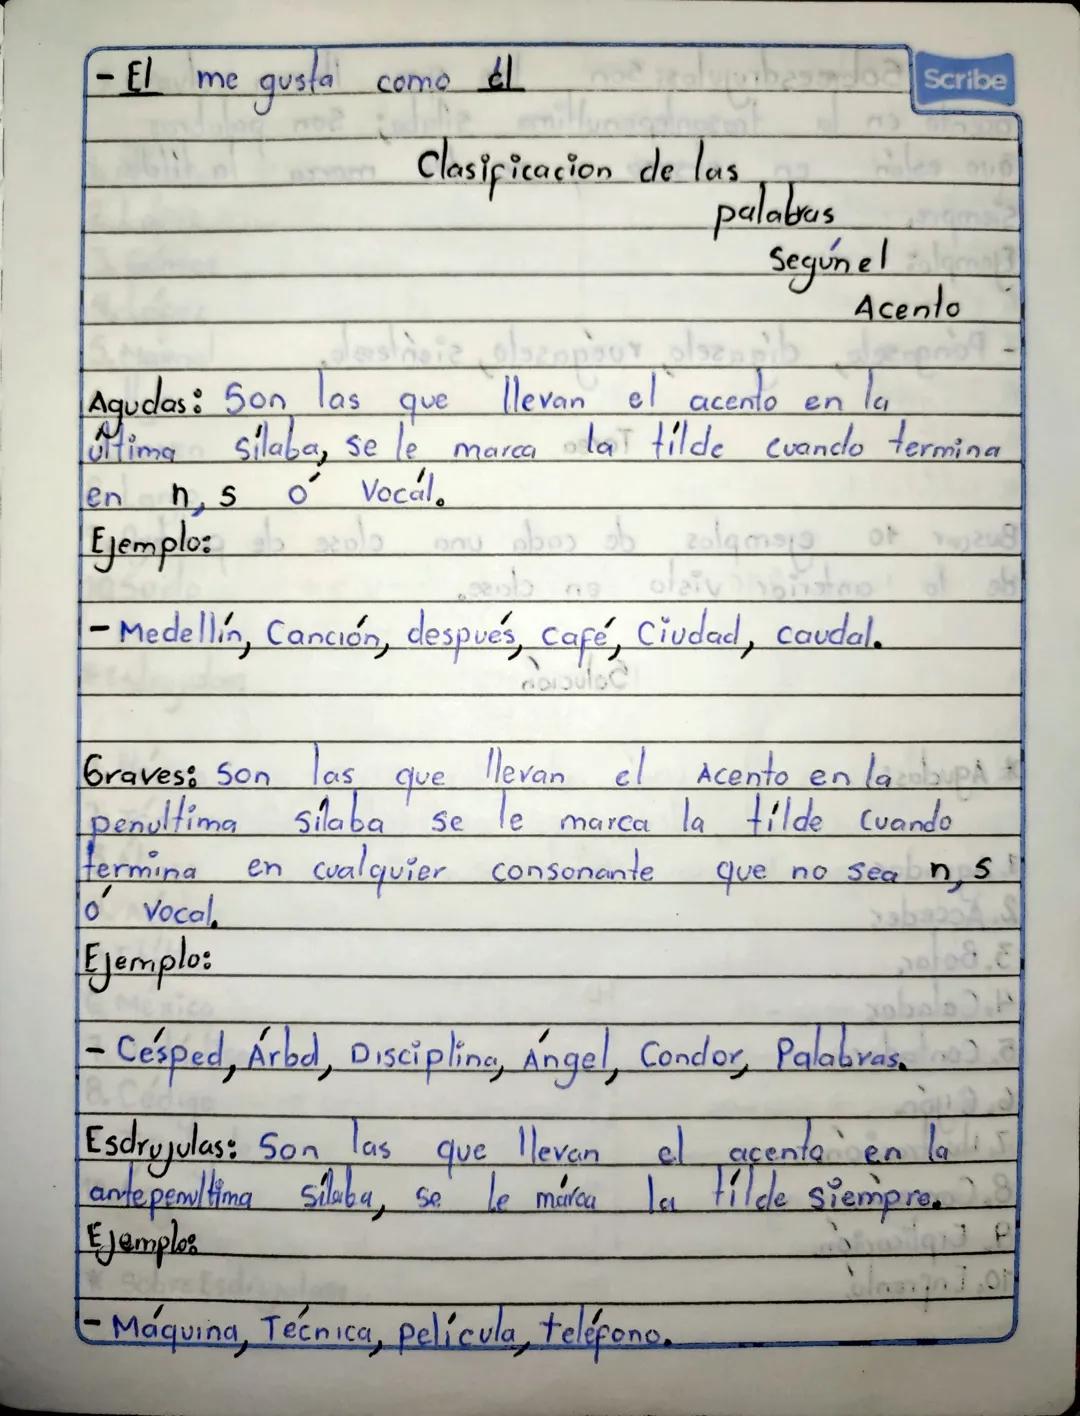 - El me gusta como él
Scribe
Clasificacion de las
palabras
Según el
Acento
Agudas: Son las que llevan el acento en la
última sílaba, se le marca la tilde cuando termina
en n, s ó Vocal.
Ejemplo:
- Medellín, Canción, después, café, Ciudad, caudal.
Graves: Son las que llevan el Acento en la
penultima sílaba se le marca la tilde Cuando
termina en cualquier consonante que no sea n, s
ó Vocal.
Ejemplo:
- Césped, Árbol, Disciplina, Ángel, Condor, Palabras.
Esdrujulas: Son las que llevan el acento en la
antepenultima sílaba, se le marca la tilde siempre.
Ejemplo:
- Máquina, Técnica, película, teléfono.